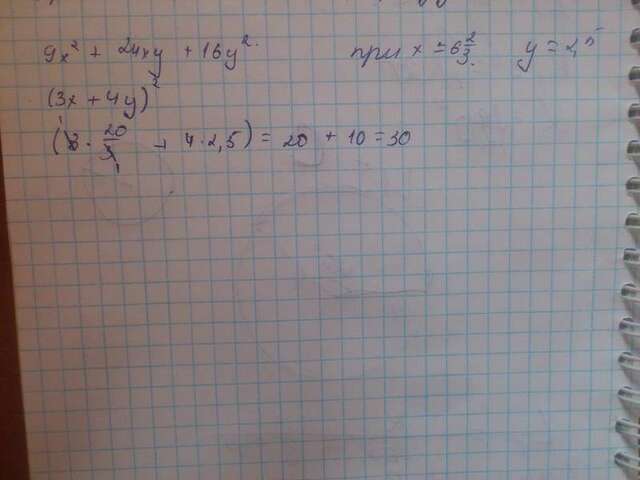 9x² + 24xy + 16y² при x = 6 2/3. y = 2,5
(3x + 4y)²
(3 · 20/3 + 4 · 2,5) = 20 + 10 = 30